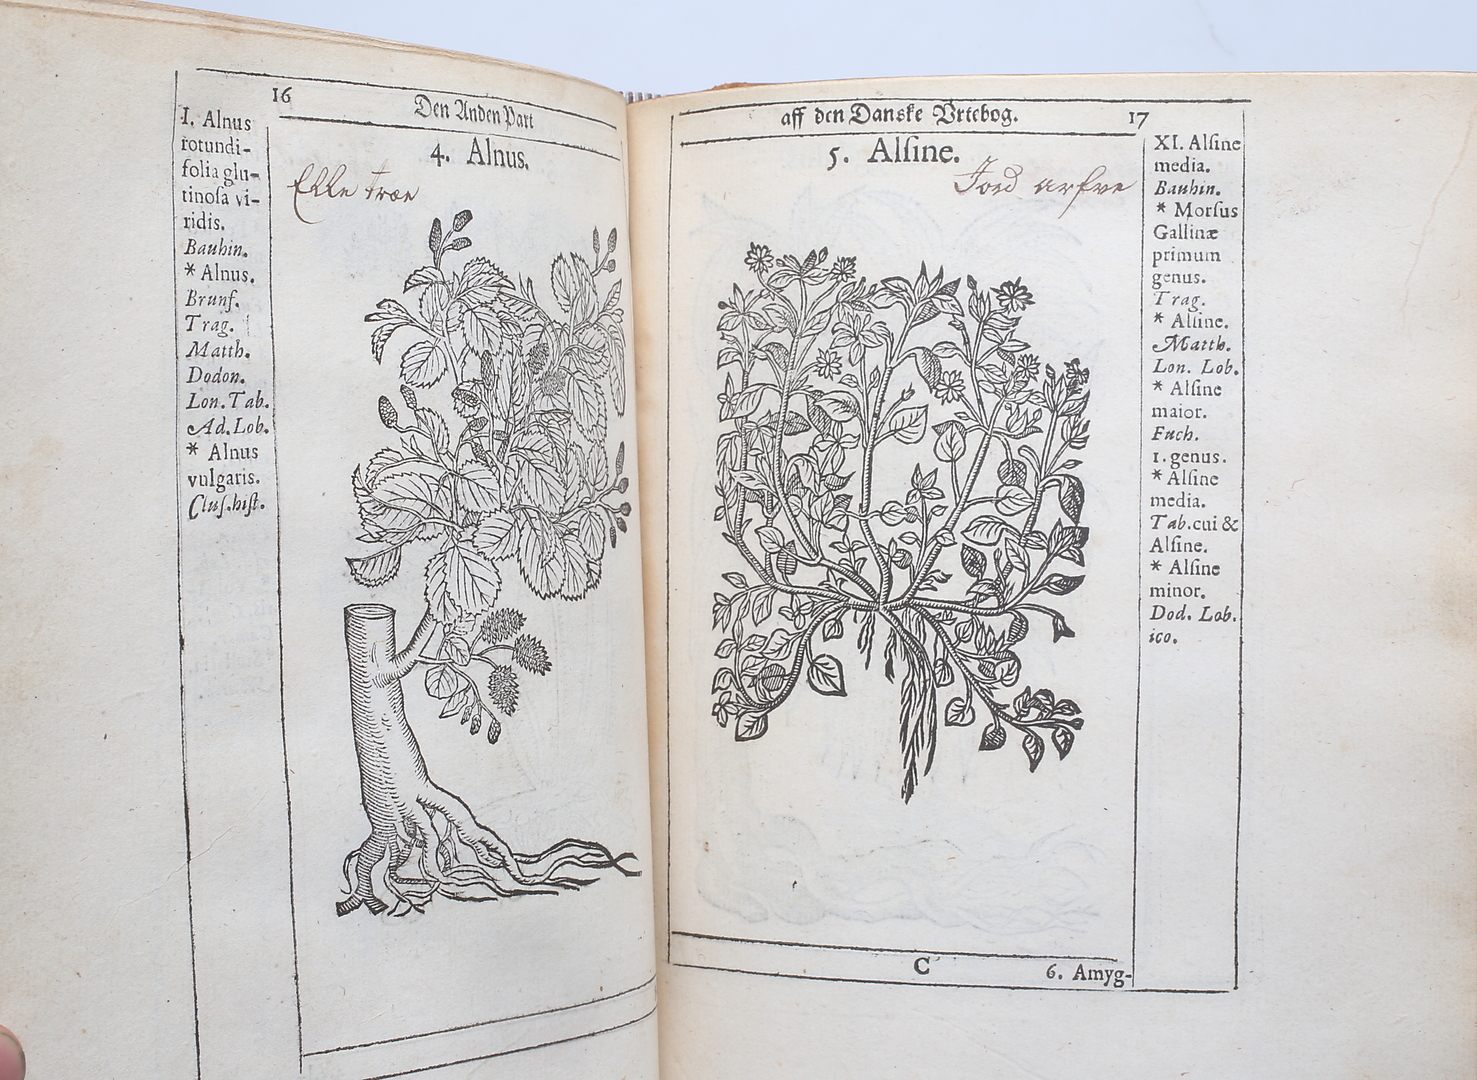 16
Den Anden Part
4. Alnus.
Elle træ
I. Alnus
rotundi-
folia glu-
tinoſa vi-
ridis.
Bauhin.
* Alnus.
Brunf.
Trag.
Matth.
Dodon.
Lon. Tab.
Ad. Lob.
* Alnus
vulgaris.
Cluſ. hiſt.
aff den Danske Vrtebog.
17
5. Alſine.
XI. Alſine
media.
Bauhin.
* Morſus
Gallinæ
primum
genus.
Trag.
* Alſine.
Matth.
Lon. Lob.
* Alſine
maior.
Fuch.
1. genus.
* Alſine
media.
Tab. cui &
Alſine.
* Alſine
minor.
Dod. Lob.
ico.
C
6. Amyg-